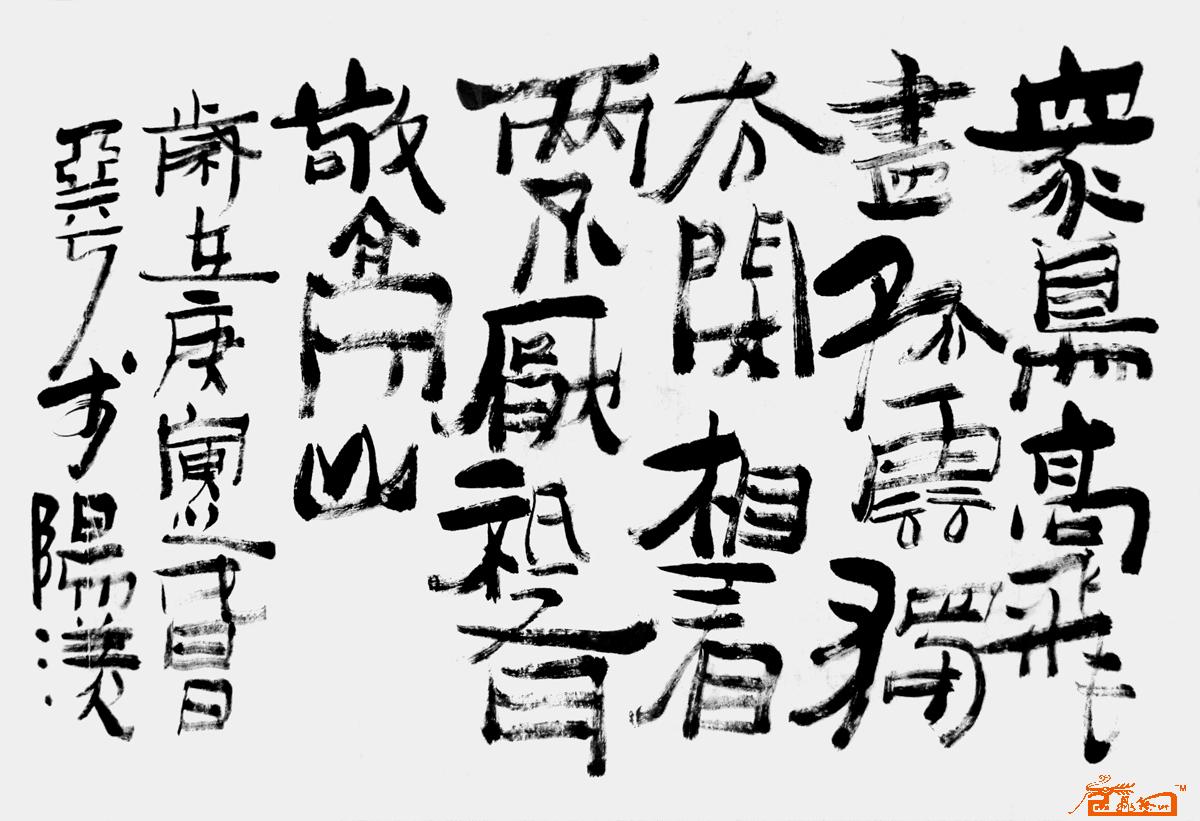 眾鳥高飛
盡孤雲獨
去閑相看
兩不厭祇有
敬亭山
歲在庚寅之春日
於陽羨